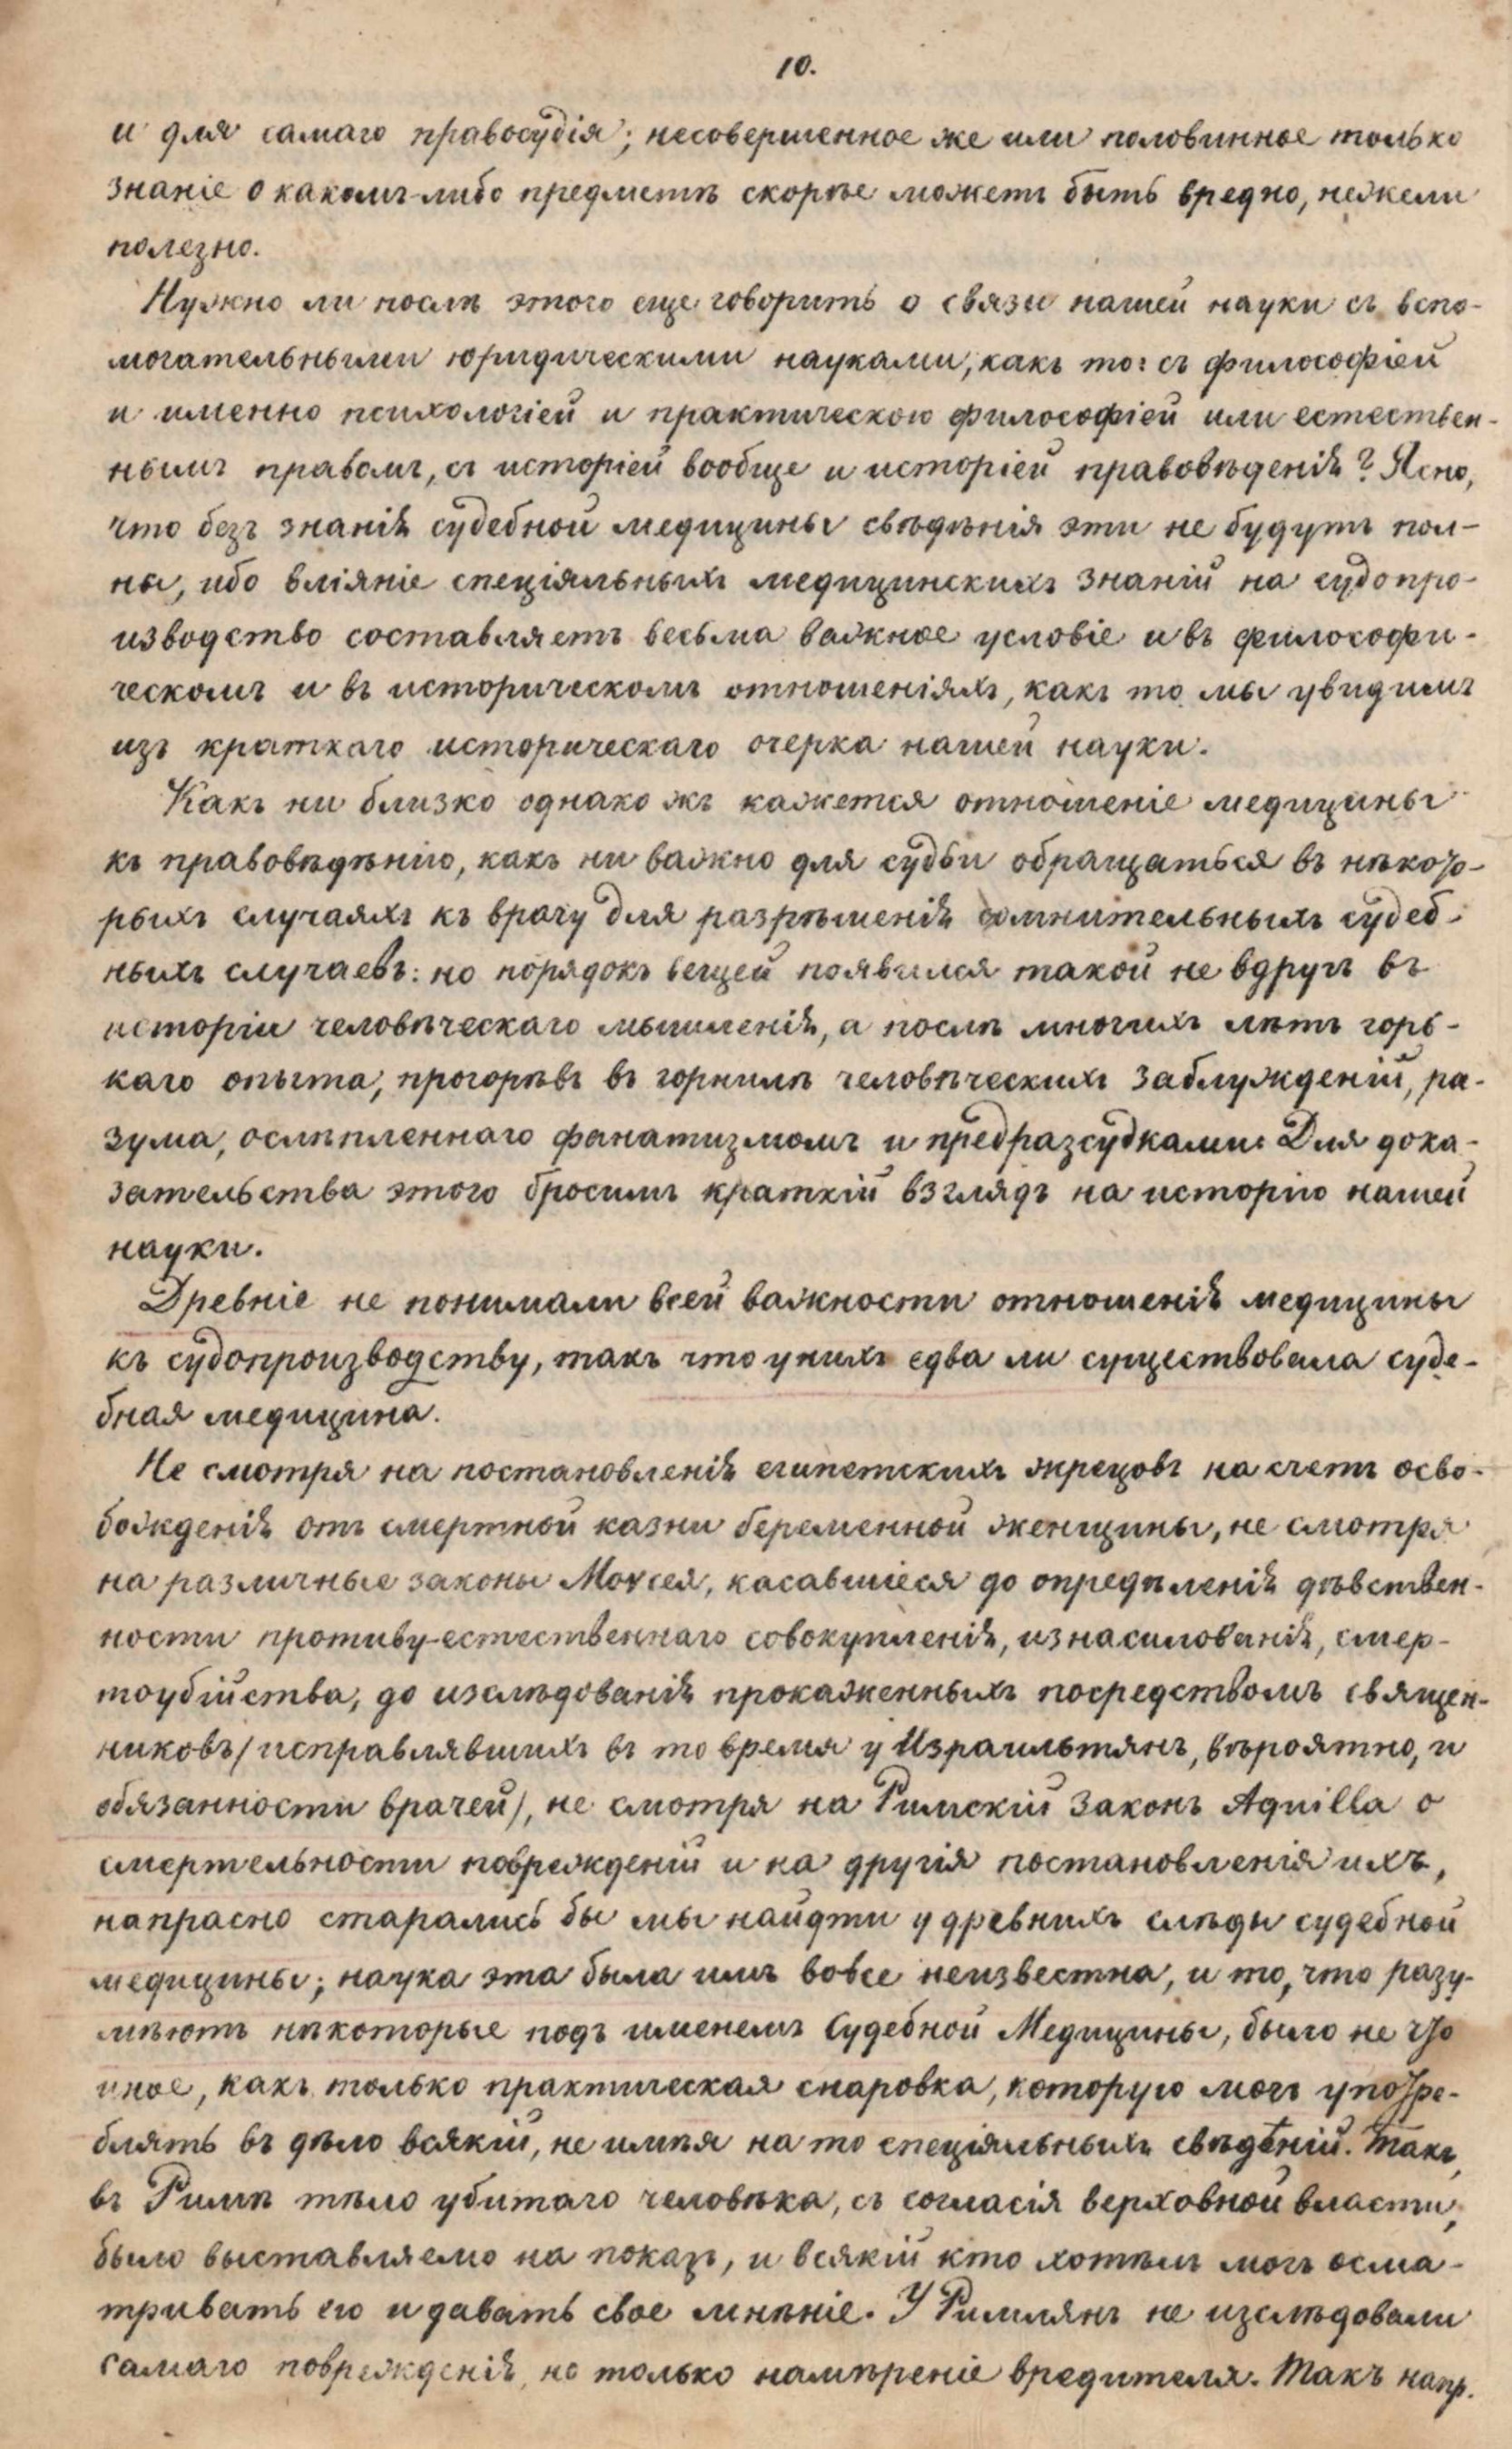 10.
и для самаго правосудія; несовершенное же или половинное только
знаніе о какомъ-либо предметѣ скорѣе можетъ быть вредно, нежели
полезно.
Нужно ли послѣ этого еще говорить о связи нашей науки съ вспо-
могательными юридическими науками, какъ то: съ философіей
и именно психологіей и практическою философіей или естествен-
нымъ правомъ, съ исторіей вообще и исторіей правовѣденія? Ясно,
что безъ знанія судебной медицины свѣдѣнія эти не будутъ пол-
ны, ибо вліяніе спеціяльныхъ медицинскихъ знаній на судопро-
изводство составляетъ весьма важное условіе и въ философи-
ческомъ и въ историческомъ отношеніяхъ, какъ то мы увидимъ
изъ краткаго историческаго очерка нашей науки.
Какъ ни близко однако жъ кажется отношеніе медицины
къ правовѣдѣнію, какъ ни важно для судьи обращаться въ нѣкото-
рыхъ случаяхъ къ врачу для разрѣшенія сомнительныхъ судеб-
ныхъ случаевъ: но порядокъ вещей появился такой не вдругъ въ
исторіи человѣческаго мышленія, а послѣ многихъ лѣтъ горь-
каго опыта, прогорѣвъ въ горнилѣ человѣческихъ заблужденій, ра-
зума, ослѣпленнаго фанатизмомъ и предразсудками. Для дока-
зательства этого бросимъ краткій взглядъ на исторію нашей
науки.
Древніе не понимали всей важности отношенія медицины
къ судопроизводству, такъ что у нихъ едва ли существовала суде-
бная медицина.
Не смотря на постановленія египетскихъ жрецовъ на счетъ осво-
божденія отъ смертной казни беременной женщины, не смотря
на различные законы Моѵсея, касавшіеся до опредѣленія дѣвствен-
ности противу-естественнаго совокупленія, изнасилованія, смер-
тоубійства, до изслѣдованія прокаженныхъ посредствомъ священ-
никовъ/исправлявшихъ въ то время у Израильтянъ, вѣроятно, и
обязанности врачей/, не смотря на Римскій Законъ Aquilla о
смертельности поврежденій и на другія постановленія ихъ,
напрасно старались бы мы найдти у древнихъ слѣды судебной
медицины; наука эта была имъ вовсе неизвестна, и то, что разу-
мѣютъ нѣкоторые подъ именемъ Судебной Медицины, было не что
иное, какъ только практическая снаровка, которую могъ употре-
блять въ дѣло всякій, не имѣя на то спеціяльныхъ свѣдѣній. Такъ,
въ Римѣ тѣло убитаго человѣка, съ согласія верховной власти,
было выставляемо на показъ, и всякій кто хотѣлъ могъ осма-
тривать его и давать свое мнѣніе. У Римлянъ не изслѣдовали
самаго поврежденія, но только намѣреніе вредителя. Такъ напр.